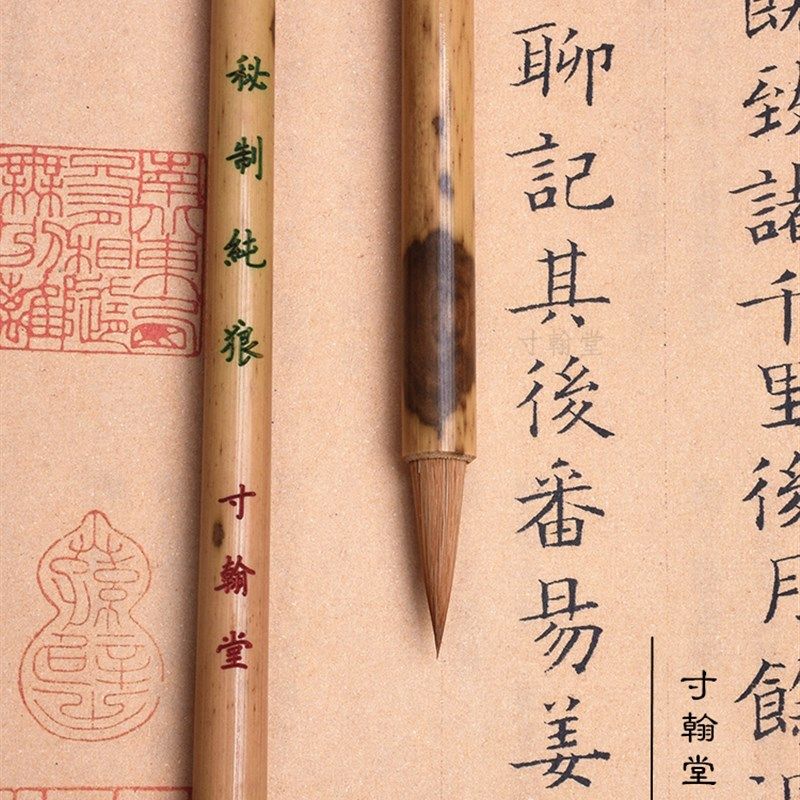 致諸千里後月餘
聊記其後番昜姜
秘制純狼
寸翰堂
寸翰堂
寸翰堂